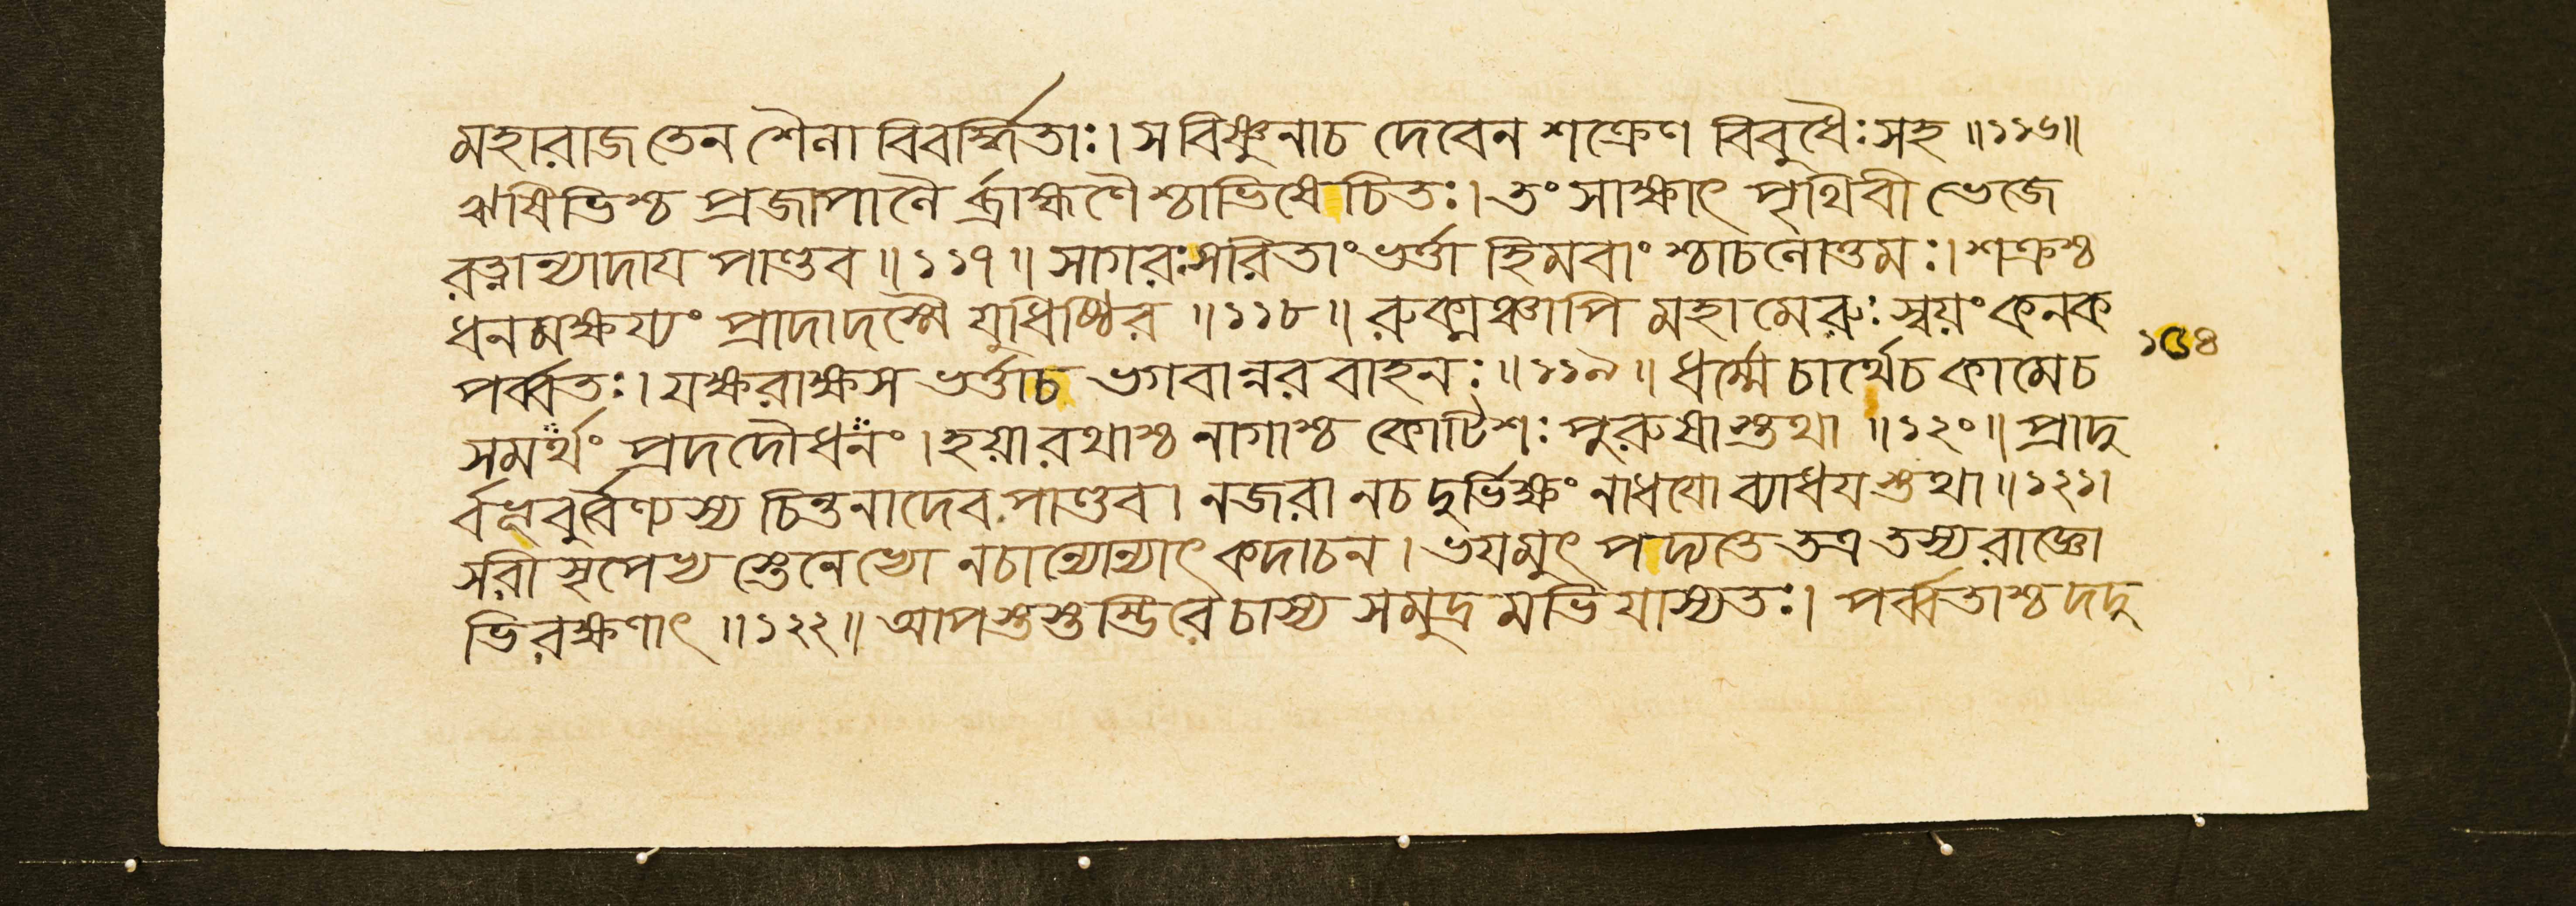 মহারাজ তেন শৈনা বিবর্জ্জিতাঃ। স বিষ্ণুনাচ দেবেন শক্রেণ বিবুধৈঃ সহ ॥১১৬॥
ঋষিভিশ্চ প্রজাপানৈ র্ব্রাহ্মণৈ শ্চাভিষেচিতঃ। তং সাক্ষাৎ পৃথিবী ভেজে
রত্নান্যাদায পাণ্ডব ॥১১৭॥ সাগরঃসরিতাং ভর্ত্তা হিমবাং শ্চাচনোত্তমঃ। শক্রশ্চ
ধনমক্ষয্যং প্রাদাদস্মৈ যুধিষ্ঠির ॥১১৮॥ রুক্মঞ্চাপি মহামেরুঃ স্বয়ং কনক
পর্ব্বতঃ। যক্ষরাক্ষস ভর্ত্তাচ ভগবান্নর বাহনঃ॥১১৯॥ ধর্ম্মে চার্থেচ কামেচ
সমর্থং প্রদদৌধনং। হয়া রথাশ্চ নাগাশ্চ কোটিশঃ পুরুষাস্তথা ॥১২০॥ প্রাদু
র্বভূবুর্বৈণ্যস্য চিন্তনাদেব পাণ্ডব। নজরা নচ দুর্ভিক্ষং নাধযো ব্যাধযস্তথা॥১২১।
সরীসৃপেভ্য স্তেনেভ্যো নচান্যোন্যাৎ কদাচন। ভযমুৎ পদ্যতে তত্র তস্যরাজ্ঞো
ভিরক্ষণাৎ ॥১২২॥ আপস্তস্তম্ভিরে চাস্য সমুদ্র মভিযাস্যতঃ। পর্ব্বতাশ্চ দদু